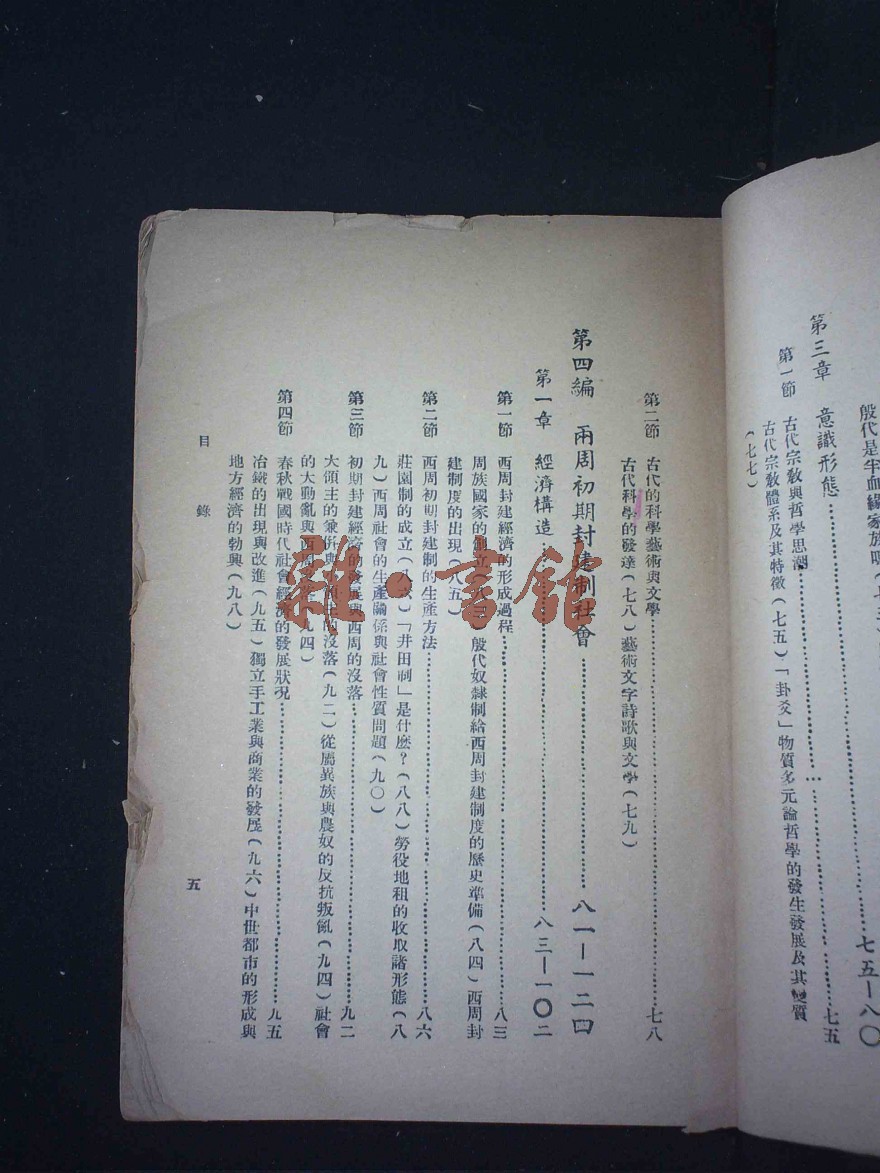 殷代是半血緣家族
第三章　意識形態……七五—八〇
第一節　古代宗教與哲學思潮……七五
古代宗教體系及其特徵（七五）「卦爻」物質多元論哲學的發生發展及其變質
（七七）
第二節　古代的科學藝術與文學……七八
古代科學的發達（七八）藝術文字詩歌與文學（七九）
第四編　兩周初期封建制社會……八一—一二四
第一章　經濟構造……八三—一〇二
第一節　西周封建經濟的形成過程……八三
周族國家的創立（八四）殷代奴隸制給西周封建制度的歷史準備（八四）西周封
建制度的出現（八五）
第二節　西周初期封建制的生產方法……八六
莊園制的成立（八六）「井田制」是什麼？（八八）勞役地租的收取諸形態（八
九）西周社會的生產關係與社會性質問題（九〇）
第三節　初期封建經濟的發展與西周的沒落……九二
大領主的兼併與小領主的沒落（九二）從屬異族與農奴的反抗叛亂（九四）社會
的大動亂與西周的（九四）
第四節　春秋戰國時代社會經濟的發展狀況……九五
冶鐵的出現與改進（九五）獨立手工業與商業的發展（九六）中世都市的形成與
地方經濟的勃興（九八）
目錄
五
雜書館